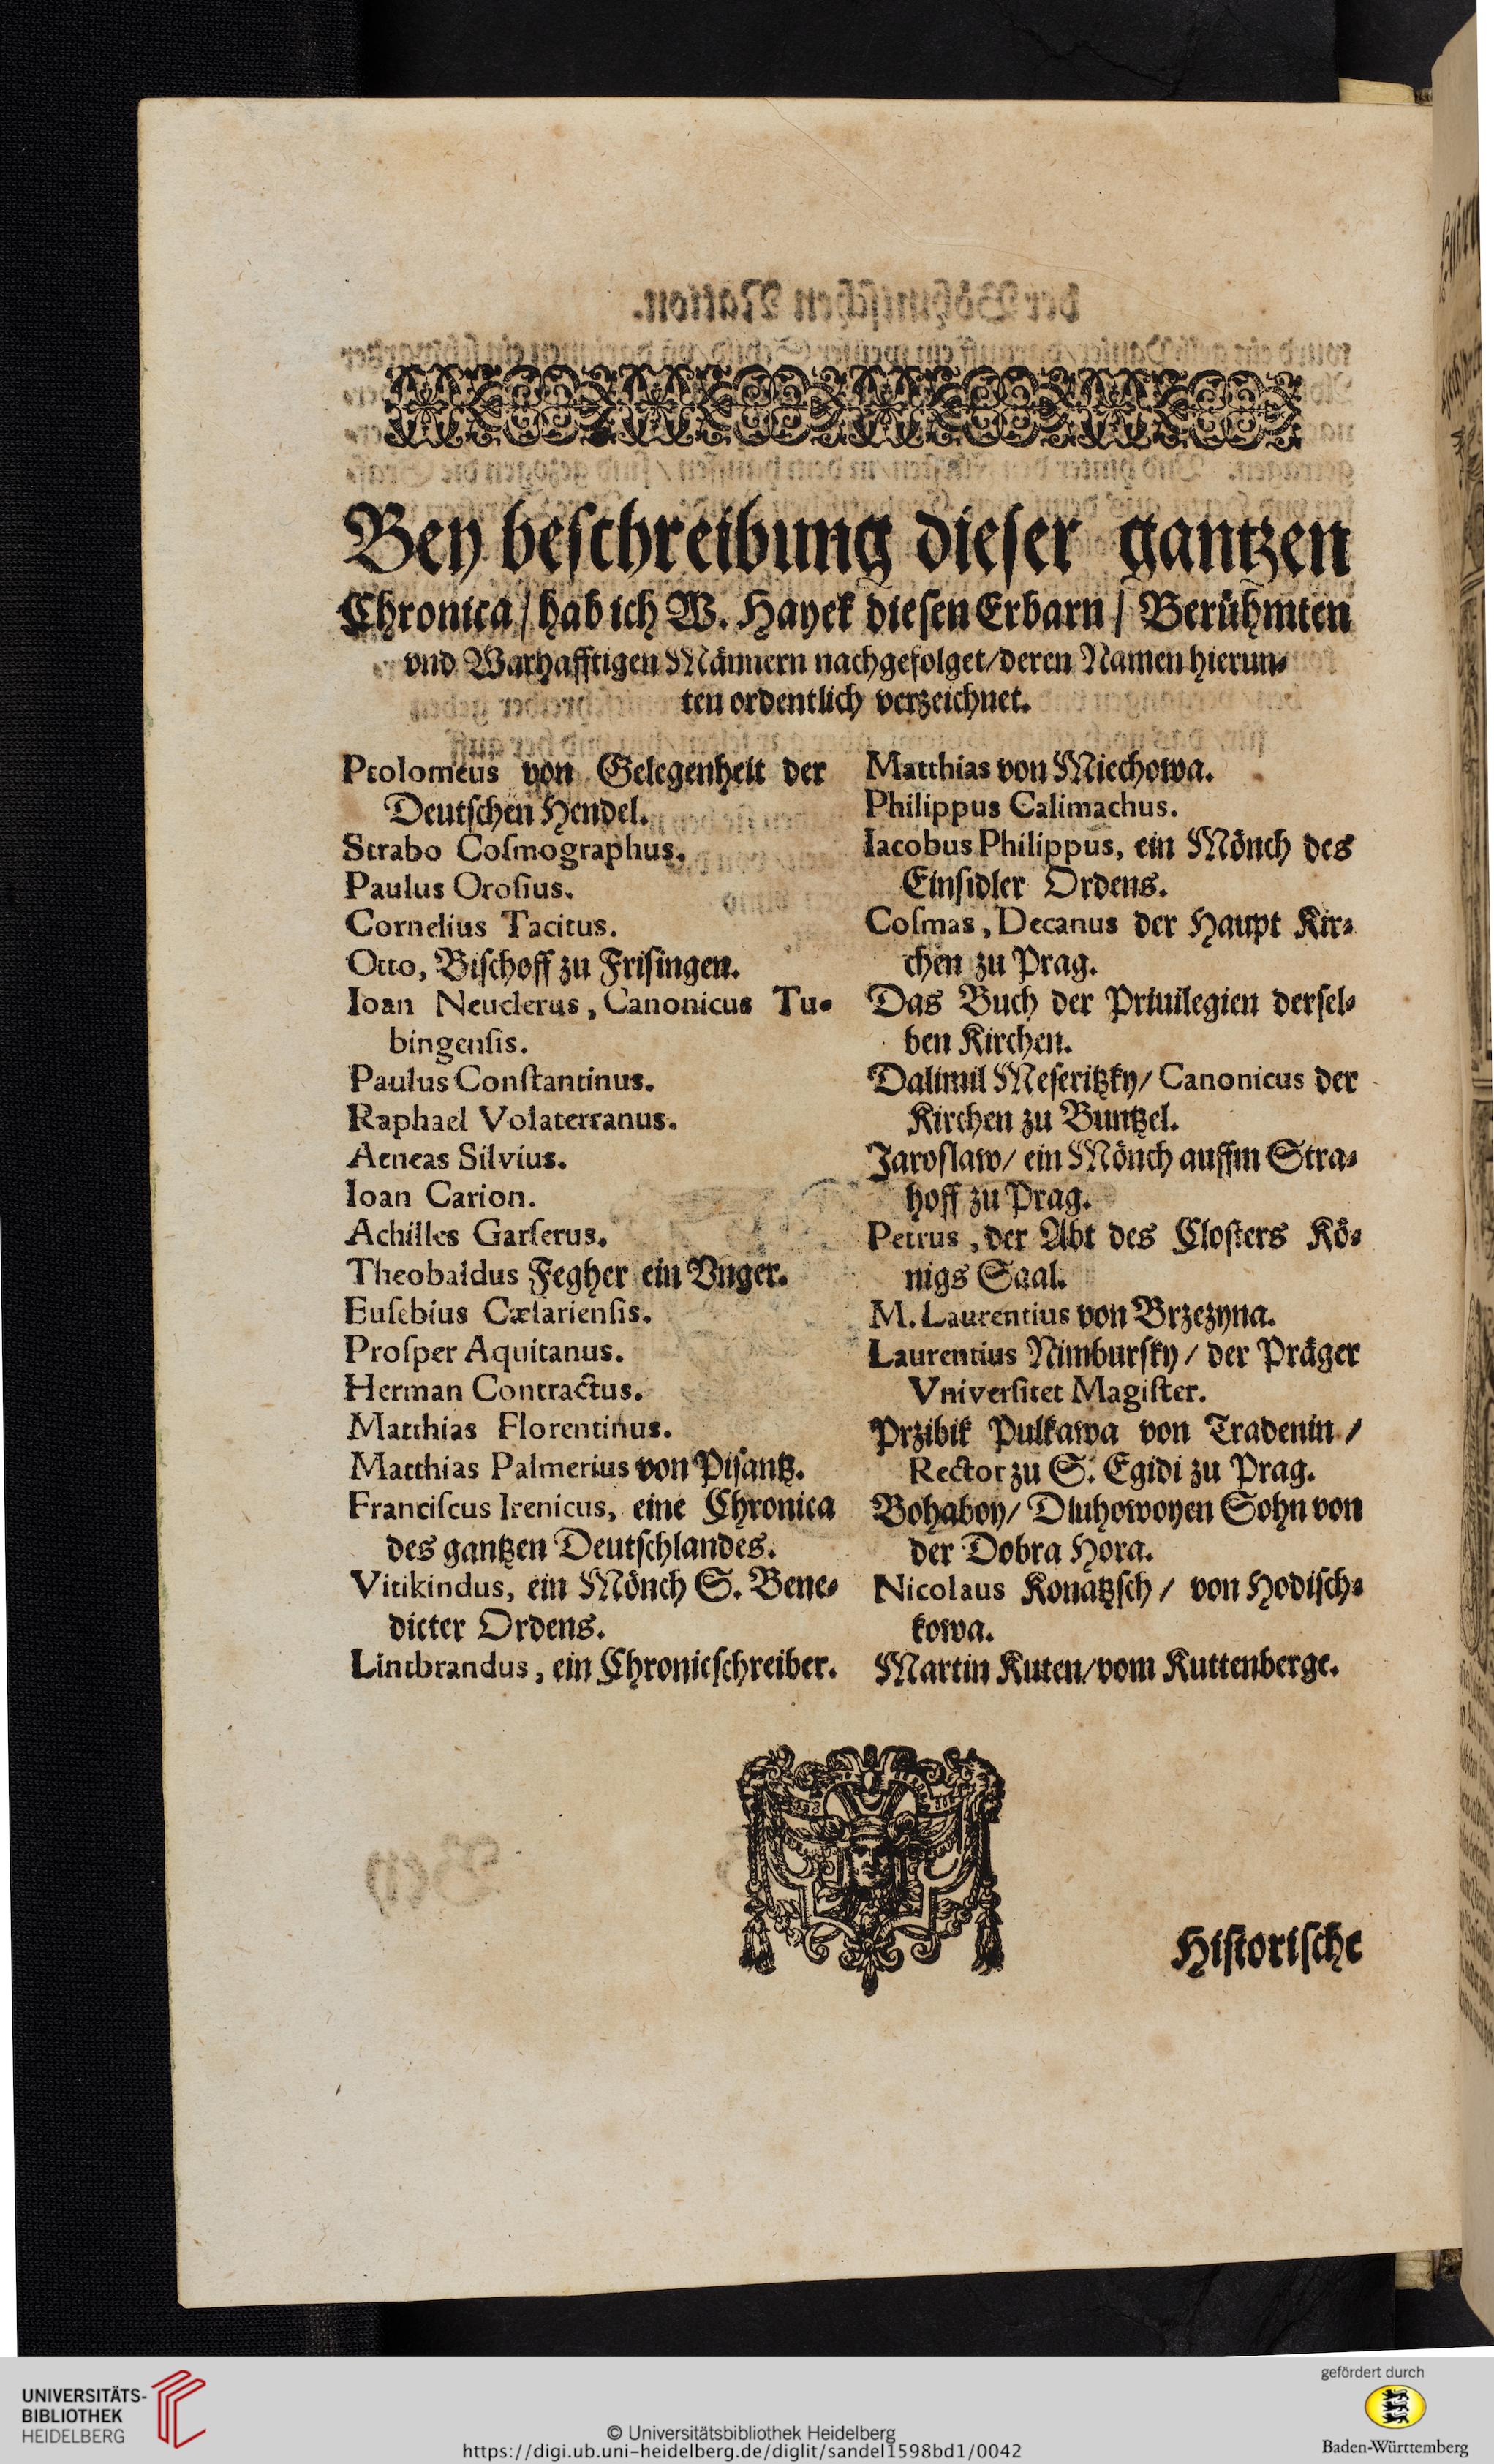 Bey beschreibung dieser gantzen
Chronica / hab ich W. Hayek diesen Erbarn / Berühmten
vnd Warhafftigen Männern nachgefolget / deren Namen hierun-
ten ordentlich verzeichnet.
Ptolomeus von Gelegenheit der
Deutschen Hendel.
Strabo Coſmographus.
Paulus Oroſius.
Cornelius Tacitus.
Otto, Bischoff zu Frisingen.
Ioan Neuclerus, Canonicus Tu-
bingenſis.
Paulus Conſtantinus.
Raphael Volaterranus.
Aeneas Silvius.
Ioan Carion.
Achilles Garſerus.
Theobaldus Fegher ein Vnger.
Euſebius Cæſarienſis.
Proſper Aquitanus.
Herman Contractus.
Matthias Florentinus.
Matthias Palmerius von Pisantz.
Franciſcus Irenicus, eine Chronica
des gantzen Deutschlandes.
Vitikindus, ein Mönch S. Bene-
dicter Ordens.
Lintbrandus, ein Chronicschreiber.
Matthias von Miechowa.
Philippus Calimachus.
Iacobus Philippus, ein Mönch des
Einsidler Ordens.
Coſmas, Decanus der Haupt Kir-
chen zu Prag.
Das Buch der Priuilegien dersel-
ben Kirchen.
Dalimil Meseritzky / Canonicus der
Kirchen zu Buntzel.
Jaroslaw / ein Mönch auffm Stra-
hoff zu Prag.
Petrus, der Abt des Closters Kö-
nigs Saal.
M. Laurentius von Brzezyna.
Laurentius Nimbursky / der Präger
Vniverſitet Magiſter.
Przibik Pulkawa von Tradenin /
Rector zu S. Egidi zu Prag.
Bohaboy / Dluhowoyen Sohn von
der Dobra Hora.
Nicolaus Konatzsch / von Hodisch-
kowa.
Martin Kuten / vom Kuttenberge.
Historische
UNIVERSITÄTS-
BIBLIOTHEK
HEIDELBERG
© Universitätsbibliothek Heidelberg
https://digi.ub.uni-heidelberg.de/diglit/sandel1598bd1/0042
gefördert durch
Baden-Württemberg